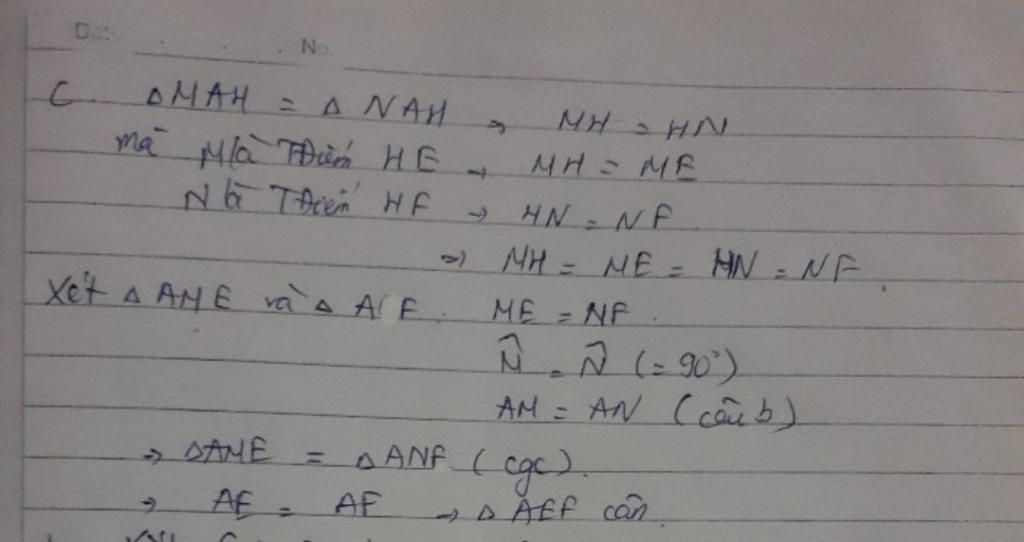 No
C. △MAH = △NAH → MH = HN
mà M là TĐiểm HE → MH = ME
N là TĐiểm HF → HN = NF
=> MH = ME = HN = NF.
Xét △AME và △A F. ME = NF.
M̂ = N̂ (= 90°)
AM = AN (câu b)
→ △AME = △ANF (cgc).
→ AE = AF → △AEF cân.